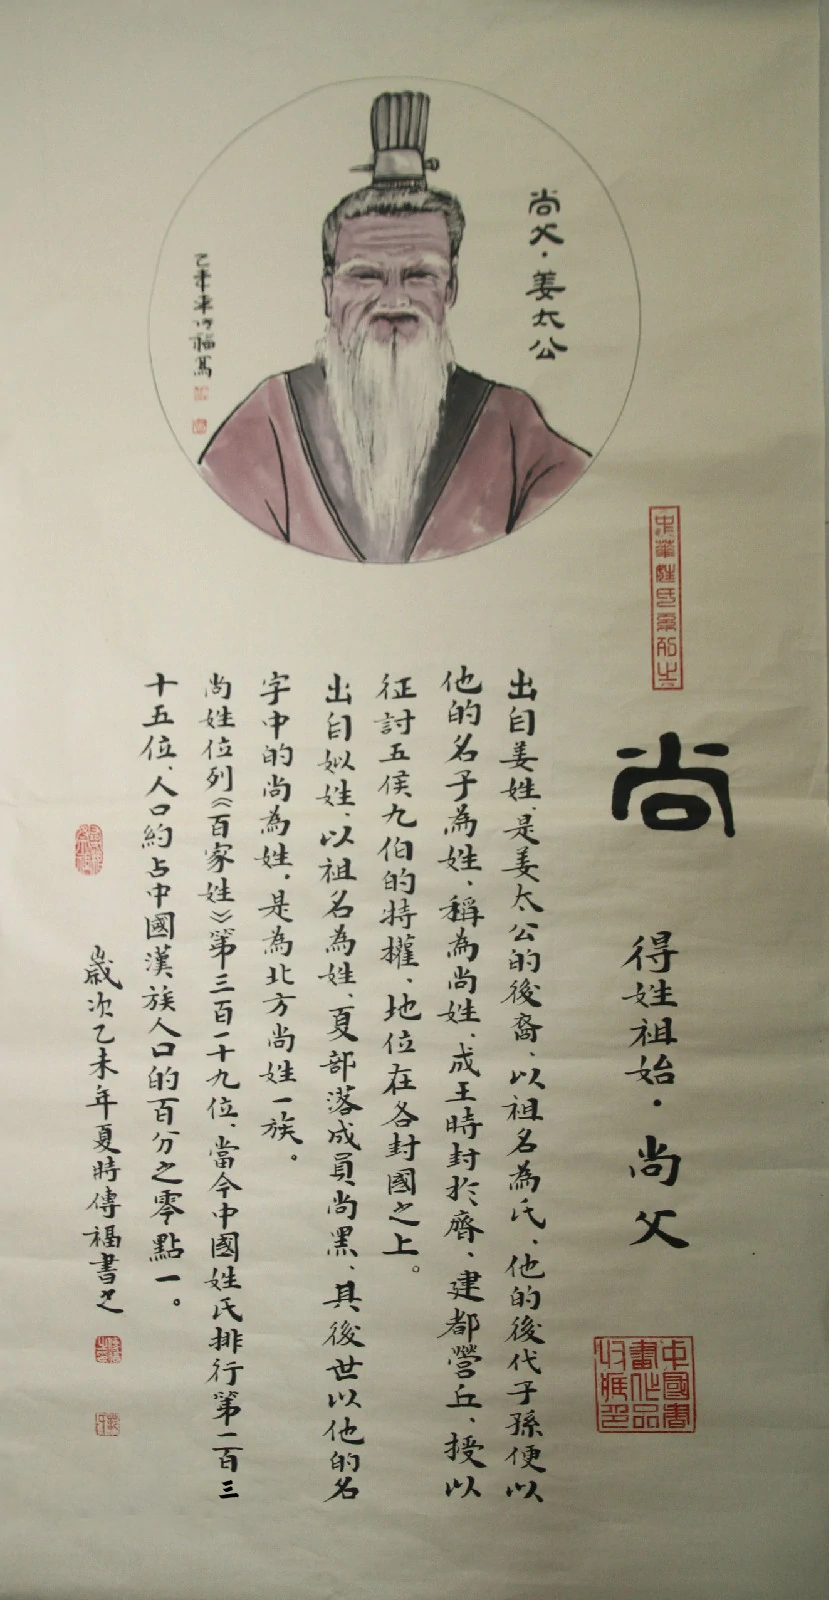 尚父·姜太公
乙未年傳福寫
中華姓氏系列之
尚
得姓祖始·尚父
中國書畫作品收藏印
出自姜姓、是姜太公的後裔、以祖名為氏、他的後代子孫便以
他的名子為姓、稱為尚姓、成王時封於齊、建都營丘、授以
征討五侯九伯的特權、地位在各封國之上。
出自姒姓、以祖名為姓、夏部落成員尚黑、其後世以他的名
字中的尚為姓、是為北方尚姓一族。
尚姓位列《百家姓》第三百一十九位、當今中國姓氏排行第一百三
十五位、人口約占中國漢族人口的百分之零點一。
歲次乙未年夏時傳福書之